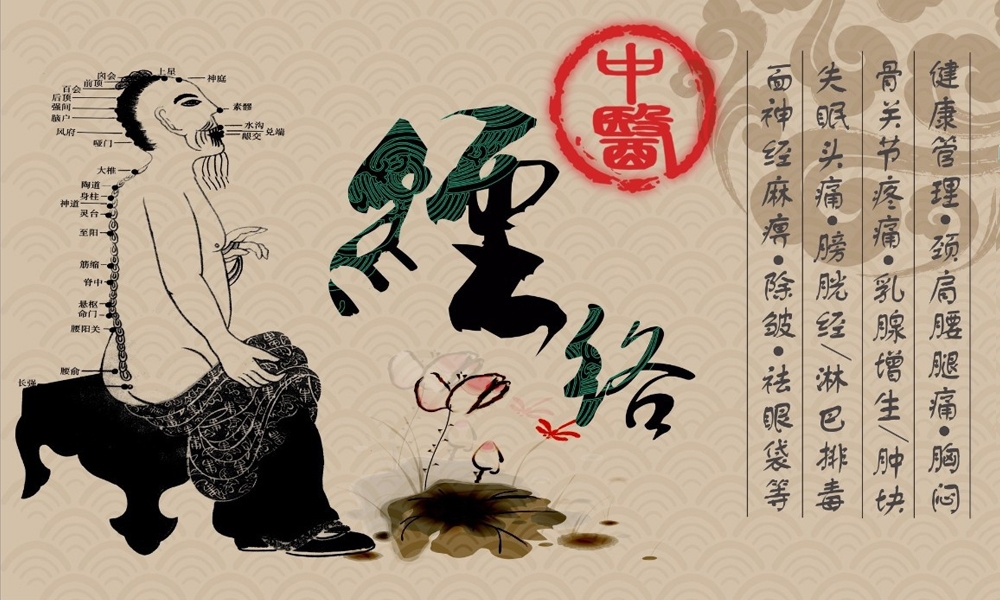 中醫
經络
健康管理·颈肩腰腿痛·胸闷
骨关节疼痛·乳腺增生/肿块
失眠头痛·膀胱经/淋巴排毒
面神经麻痹·除皱·祛眼袋等
囟会
上星
神庭
前顶
百会
后顶
强间
脑户
风府
哑门
素髎
水沟
兑端
龈交
大椎
陶道
身柱
神道
灵台
至阳
筋缩
脊中
悬枢
命门
腰阳关
腰俞
长强